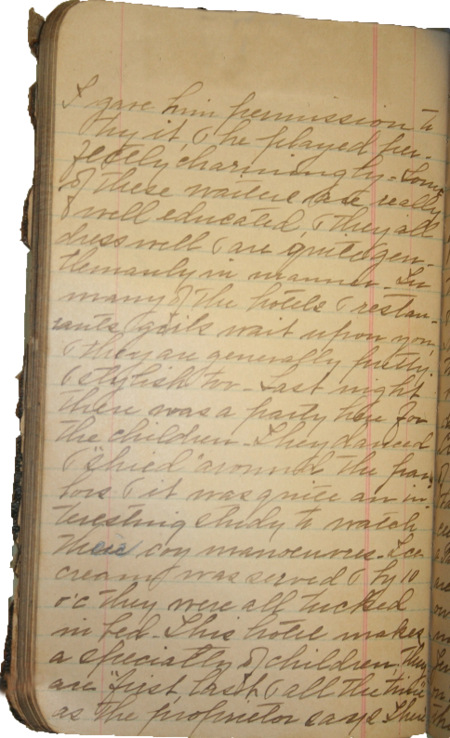 I gave him permission to
try it, & he played per-
fectly charmingly. Some
of these waiters are really
& well educated, & they all
dress well & are quite gen-
tlemanly in manner. In
many of the hotels & restau-
rants girls wait upon you,
& they are generally pretty
& stylish too. Last night
there was a party here for
the children. They danced
& "shied" around the par-
lors & it was quite an in-
teresting study to watch
their coy manoeuvres. Ice
cream was served & by 10
o'c they were all tucked
in bed. This hotel makes
a specialty of children, they
are "first, last & all the time"
as the proprietor says. There